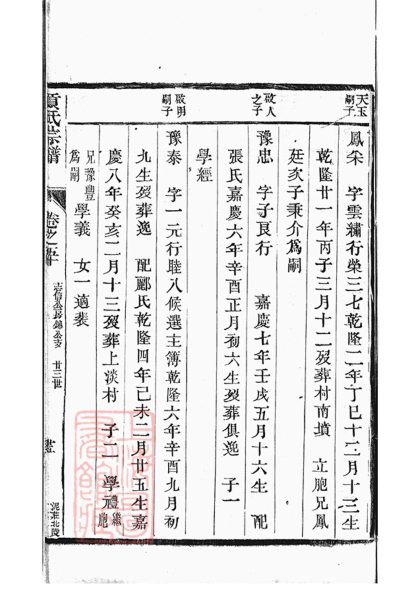 天玉
嗣子
鳳采 字雲繡行榮三七乾隆二年丁巳十二月十三生
乾隆廿一年丙子三月十二歿葬村南墳 立胞兄鳳
廷次子秉介爲嗣
啟人
之子
豫忠 字子良行 嘉慶七年壬戌五月十六生 配
張氏嘉慶六年辛酉正月初六生歿葬俱逸 子一
學經
啟明
嗣子
豫泰 字一元行睦八候選主簿乾隆六年辛酉九月初
九生歿葬逸 配酈氏乾隆四年己未二月廿五生嘉
慶八年癸亥二月十三歿葬上淡村 子二 學禮繼胞
兄豫豐爲嗣 學義 女一適裴
宗譜
卷之
廿三世